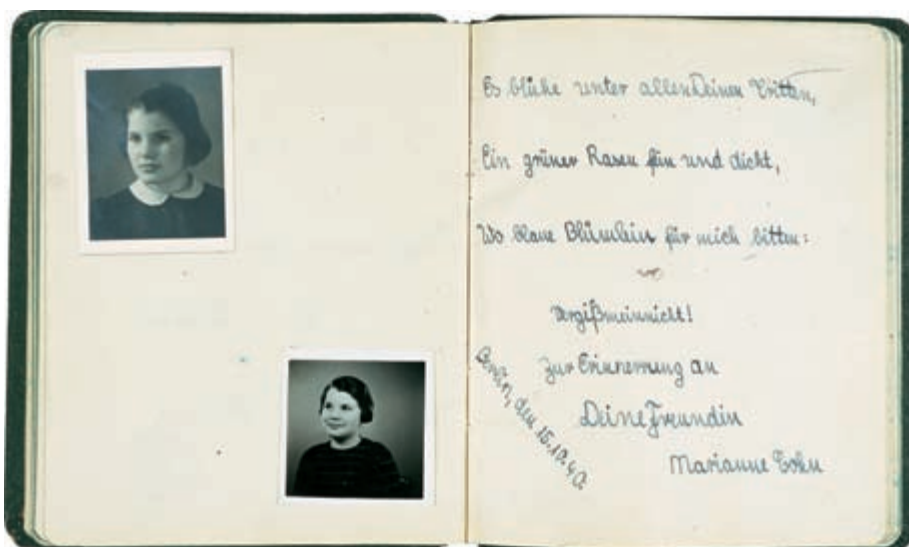 Es blühe unter allen Deinen Tritten,
Ein grüner Rasen für und dicht,
Wo blaue Blümlein für mich bitten:
Vergißmeinnicht!
Zur Erinnerung an
Deine Freundin
Marianne Cohn
Berlin, den 15.10.40.